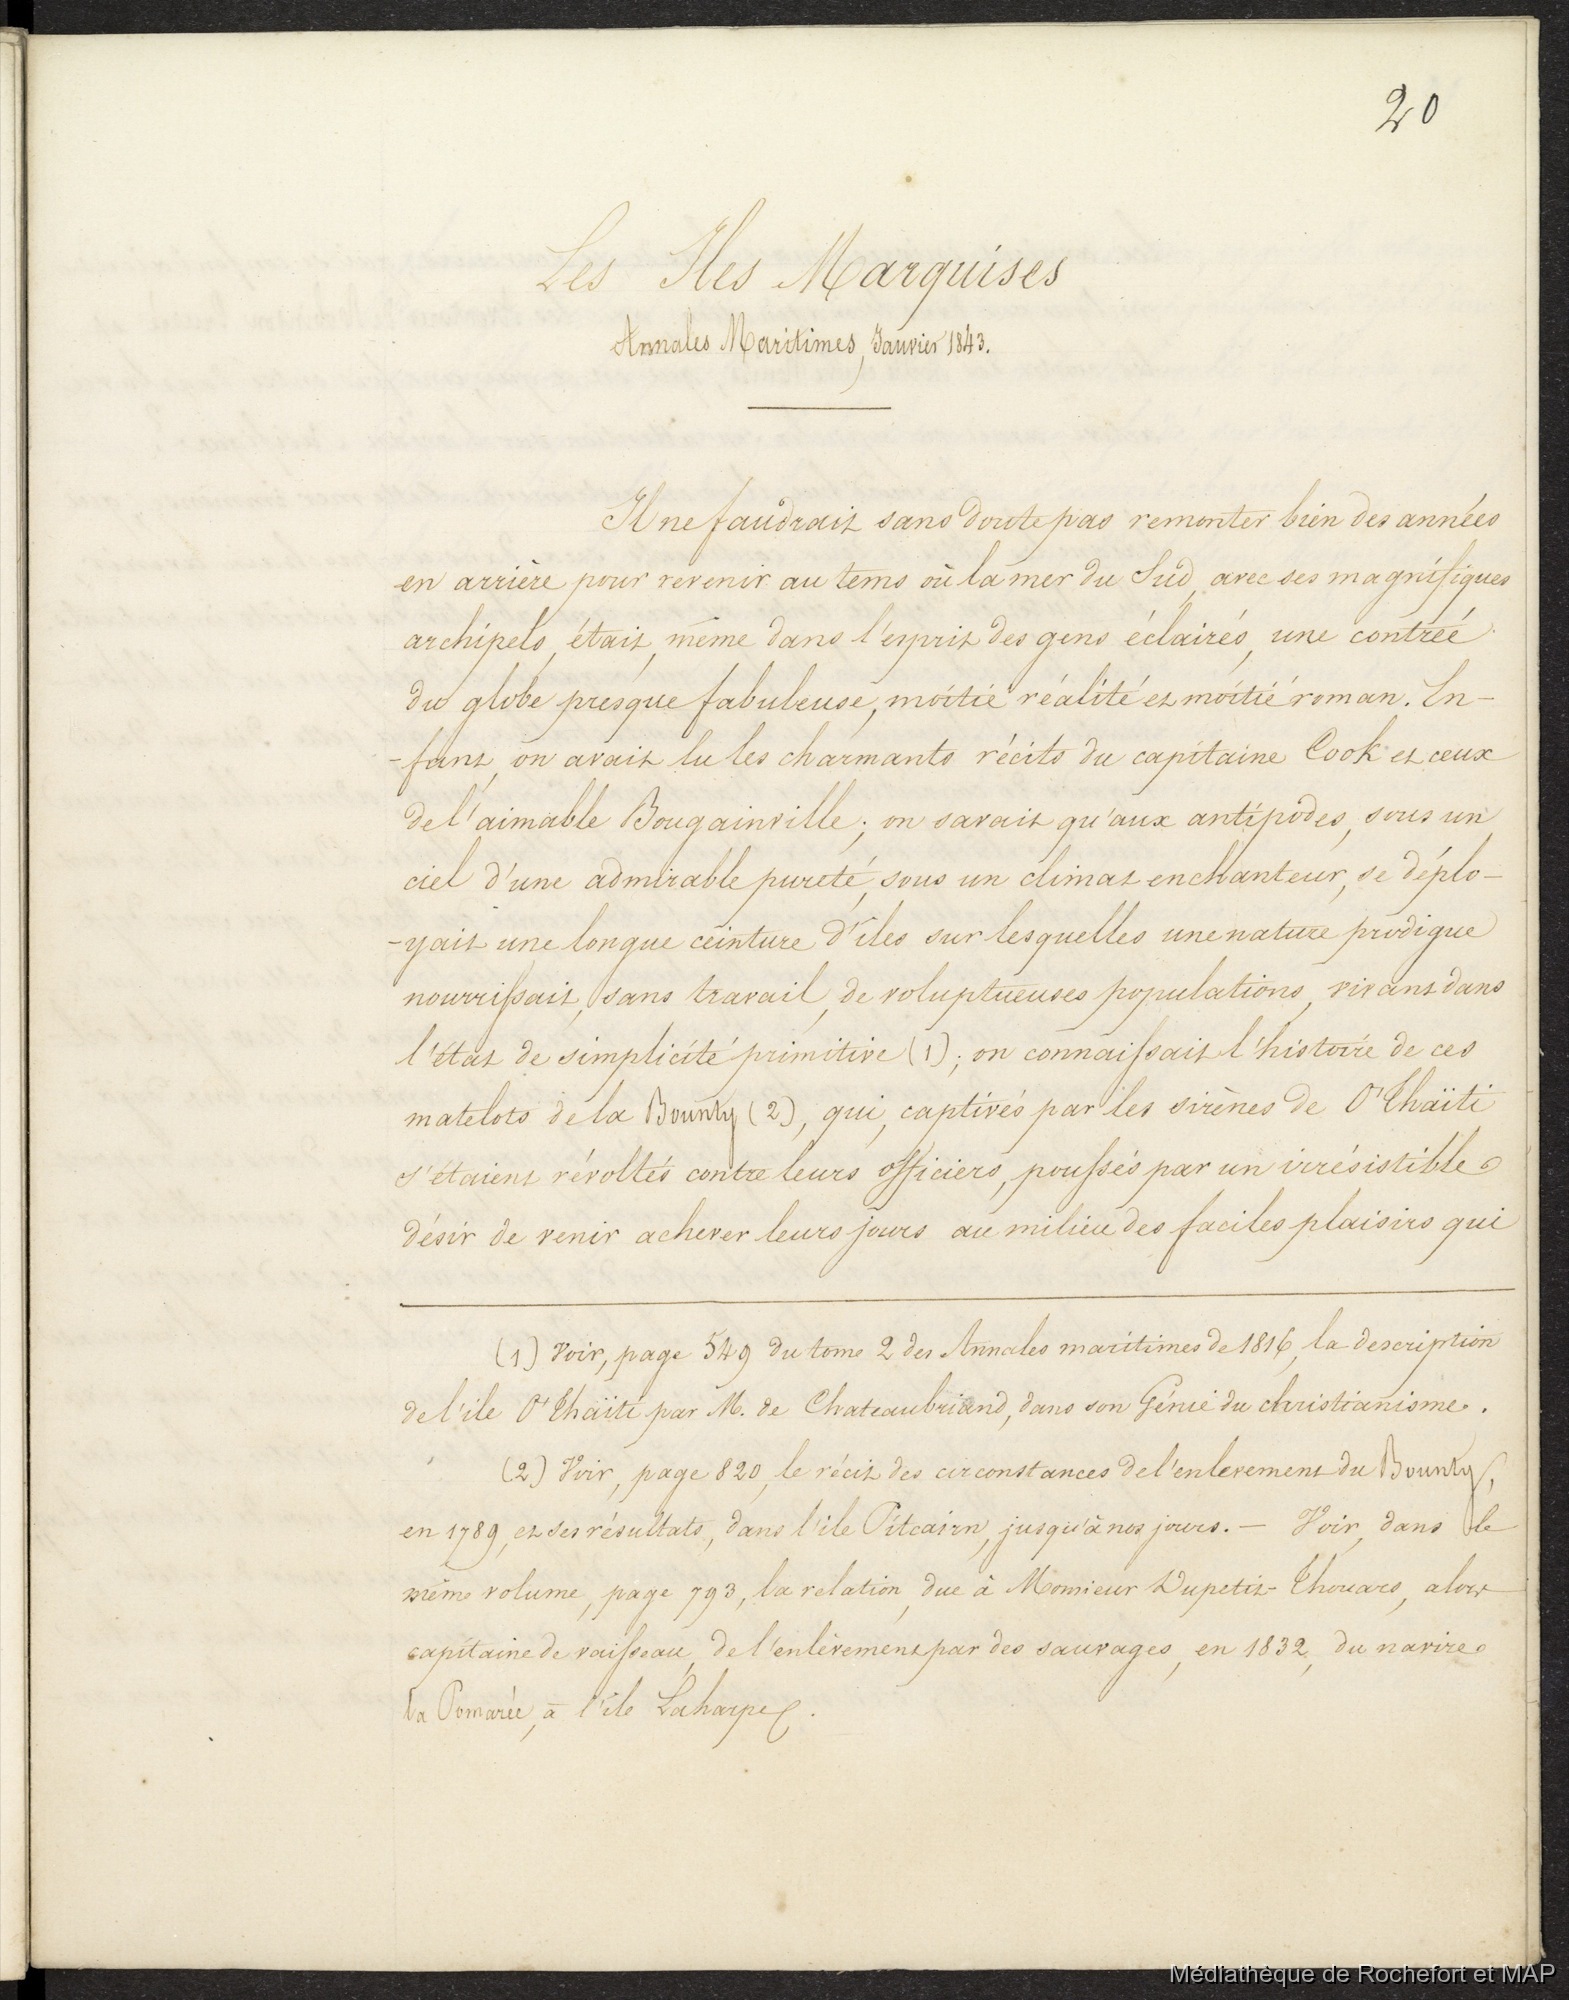 20
Les Iles Marquises
Annales Maritimes, Janvier 1843.
Il ne faudrait sans doute pas remonter bien des années
en arrière pour revenir au tems où la mer du Sud, avec ses magnifiques
archipels, était, même dans l'esprit des gens éclairés, une contrée
du globe presque fabuleuse, moitié réalité et moitié roman. En-
-fant, on avait lu les charmants récits du capitaine Cook et ceux
de l'aimable Bougainville; on savait qu'aux antipodes, sous un
ciel d'une admirable pureté, sous un climat enchanteur, se déplo-
-yait une longue ceinture d'îles sur lesquelles une nature prodigue
nourrissait, sans travail, de voluptueuses populations, vivant dans
l'état de simplicité primitive (1); on connaissait l'histoire de ces
matelots de la Bounty (2), qui, captivés par les sirènes de O'Thaïti
s'étaient révoltés contre leurs officiers, poussés par un irrésistible
désir de venir achever leurs jours au milieu des faciles plaisirs qui
(1) Voir, page 549 du tome 2 des Annales maritimes de 1816, la description
de l'ile O'Thaïti par M. de Chateaubriand, dans son Génie du christianisme.
(2) Voir, page 820, le récit des circonstances de l'enlevement du Bounty,
en 1789, et ses résultats, dans l'ile Pitcairn, jusqu'à nos jours. — Voir, dans le
même volume, page 793, la relation, due à Monsieur Dupetit-Thouars, alors
capitaine de vaisseau, de l'enlèvement par des sauvages, en 1832, du navire
la Pomarée, à l'île Laharpe.
Médiathèque de Rochefort et MAP